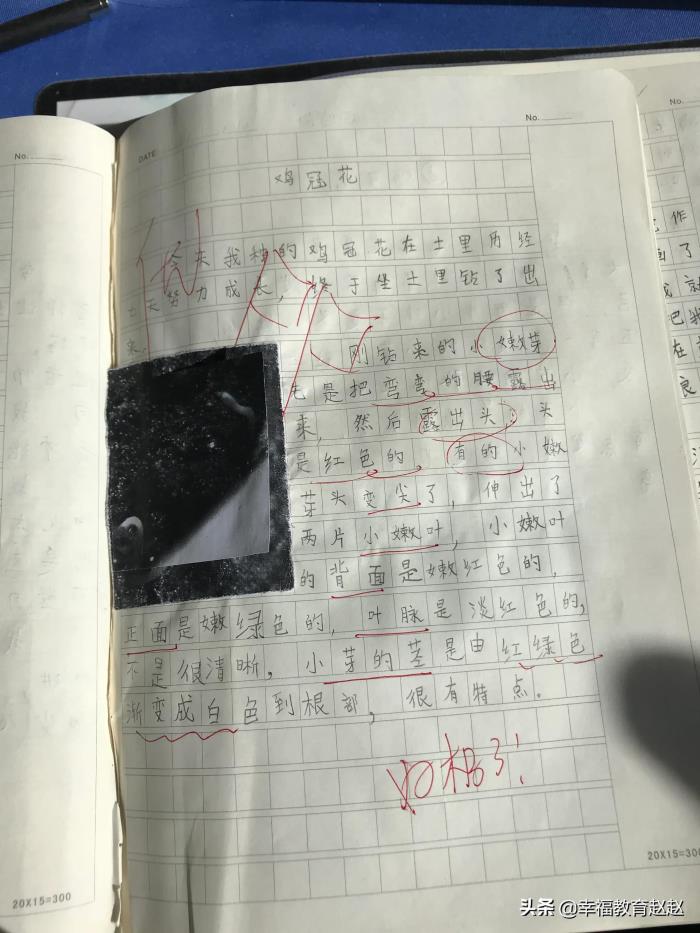 No.
No.
DATE
鸡冠花
来我种的鸡冠花在土里历经
天努力成长，终于坐土里钻了出
来。
刚钻来的小嫩芽
是把弯弯的腰露出
来，然后露出头，头
是红色的，有的小嫩
芽头变尖了，伸出了
两片小嫩叶，小嫩叶
的背面是嫩红色的，
正面是嫩绿色的，叶脉是淡红色的，
不是很清晰，小芽的茎是由红绿色
渐变成白色到根部，很有特点.
好极了！
作
了
就
把我
在
20X15=300
20X15=300
头条 @幸福教育赵赵